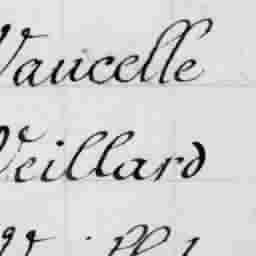 Vaucelle
Veillard